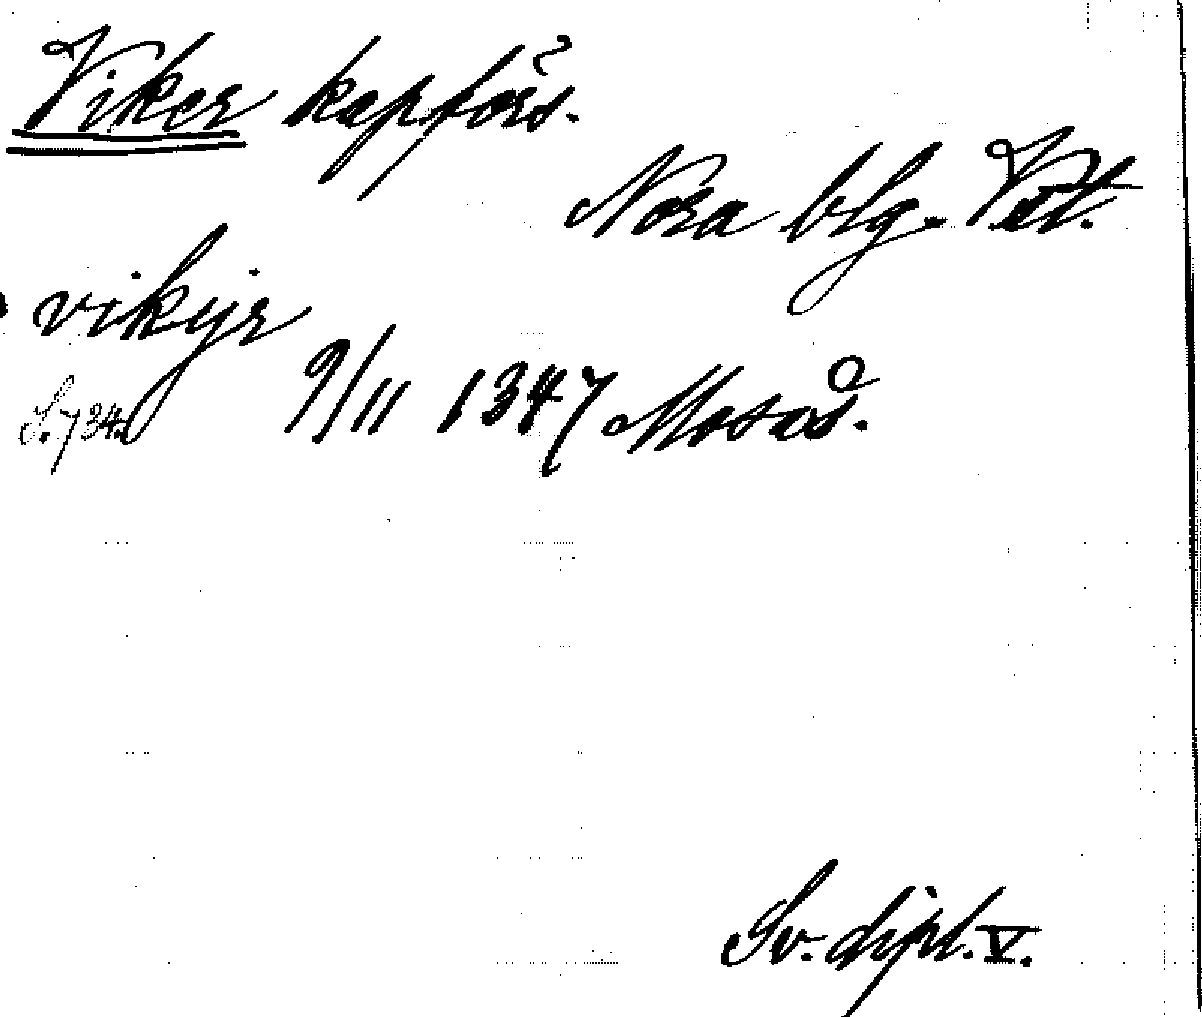 Viker kapförs.
Nora blg. Vstl.
vikyr
S. 734. 9/11 1347 Mosås.
Sv. dipl. V.